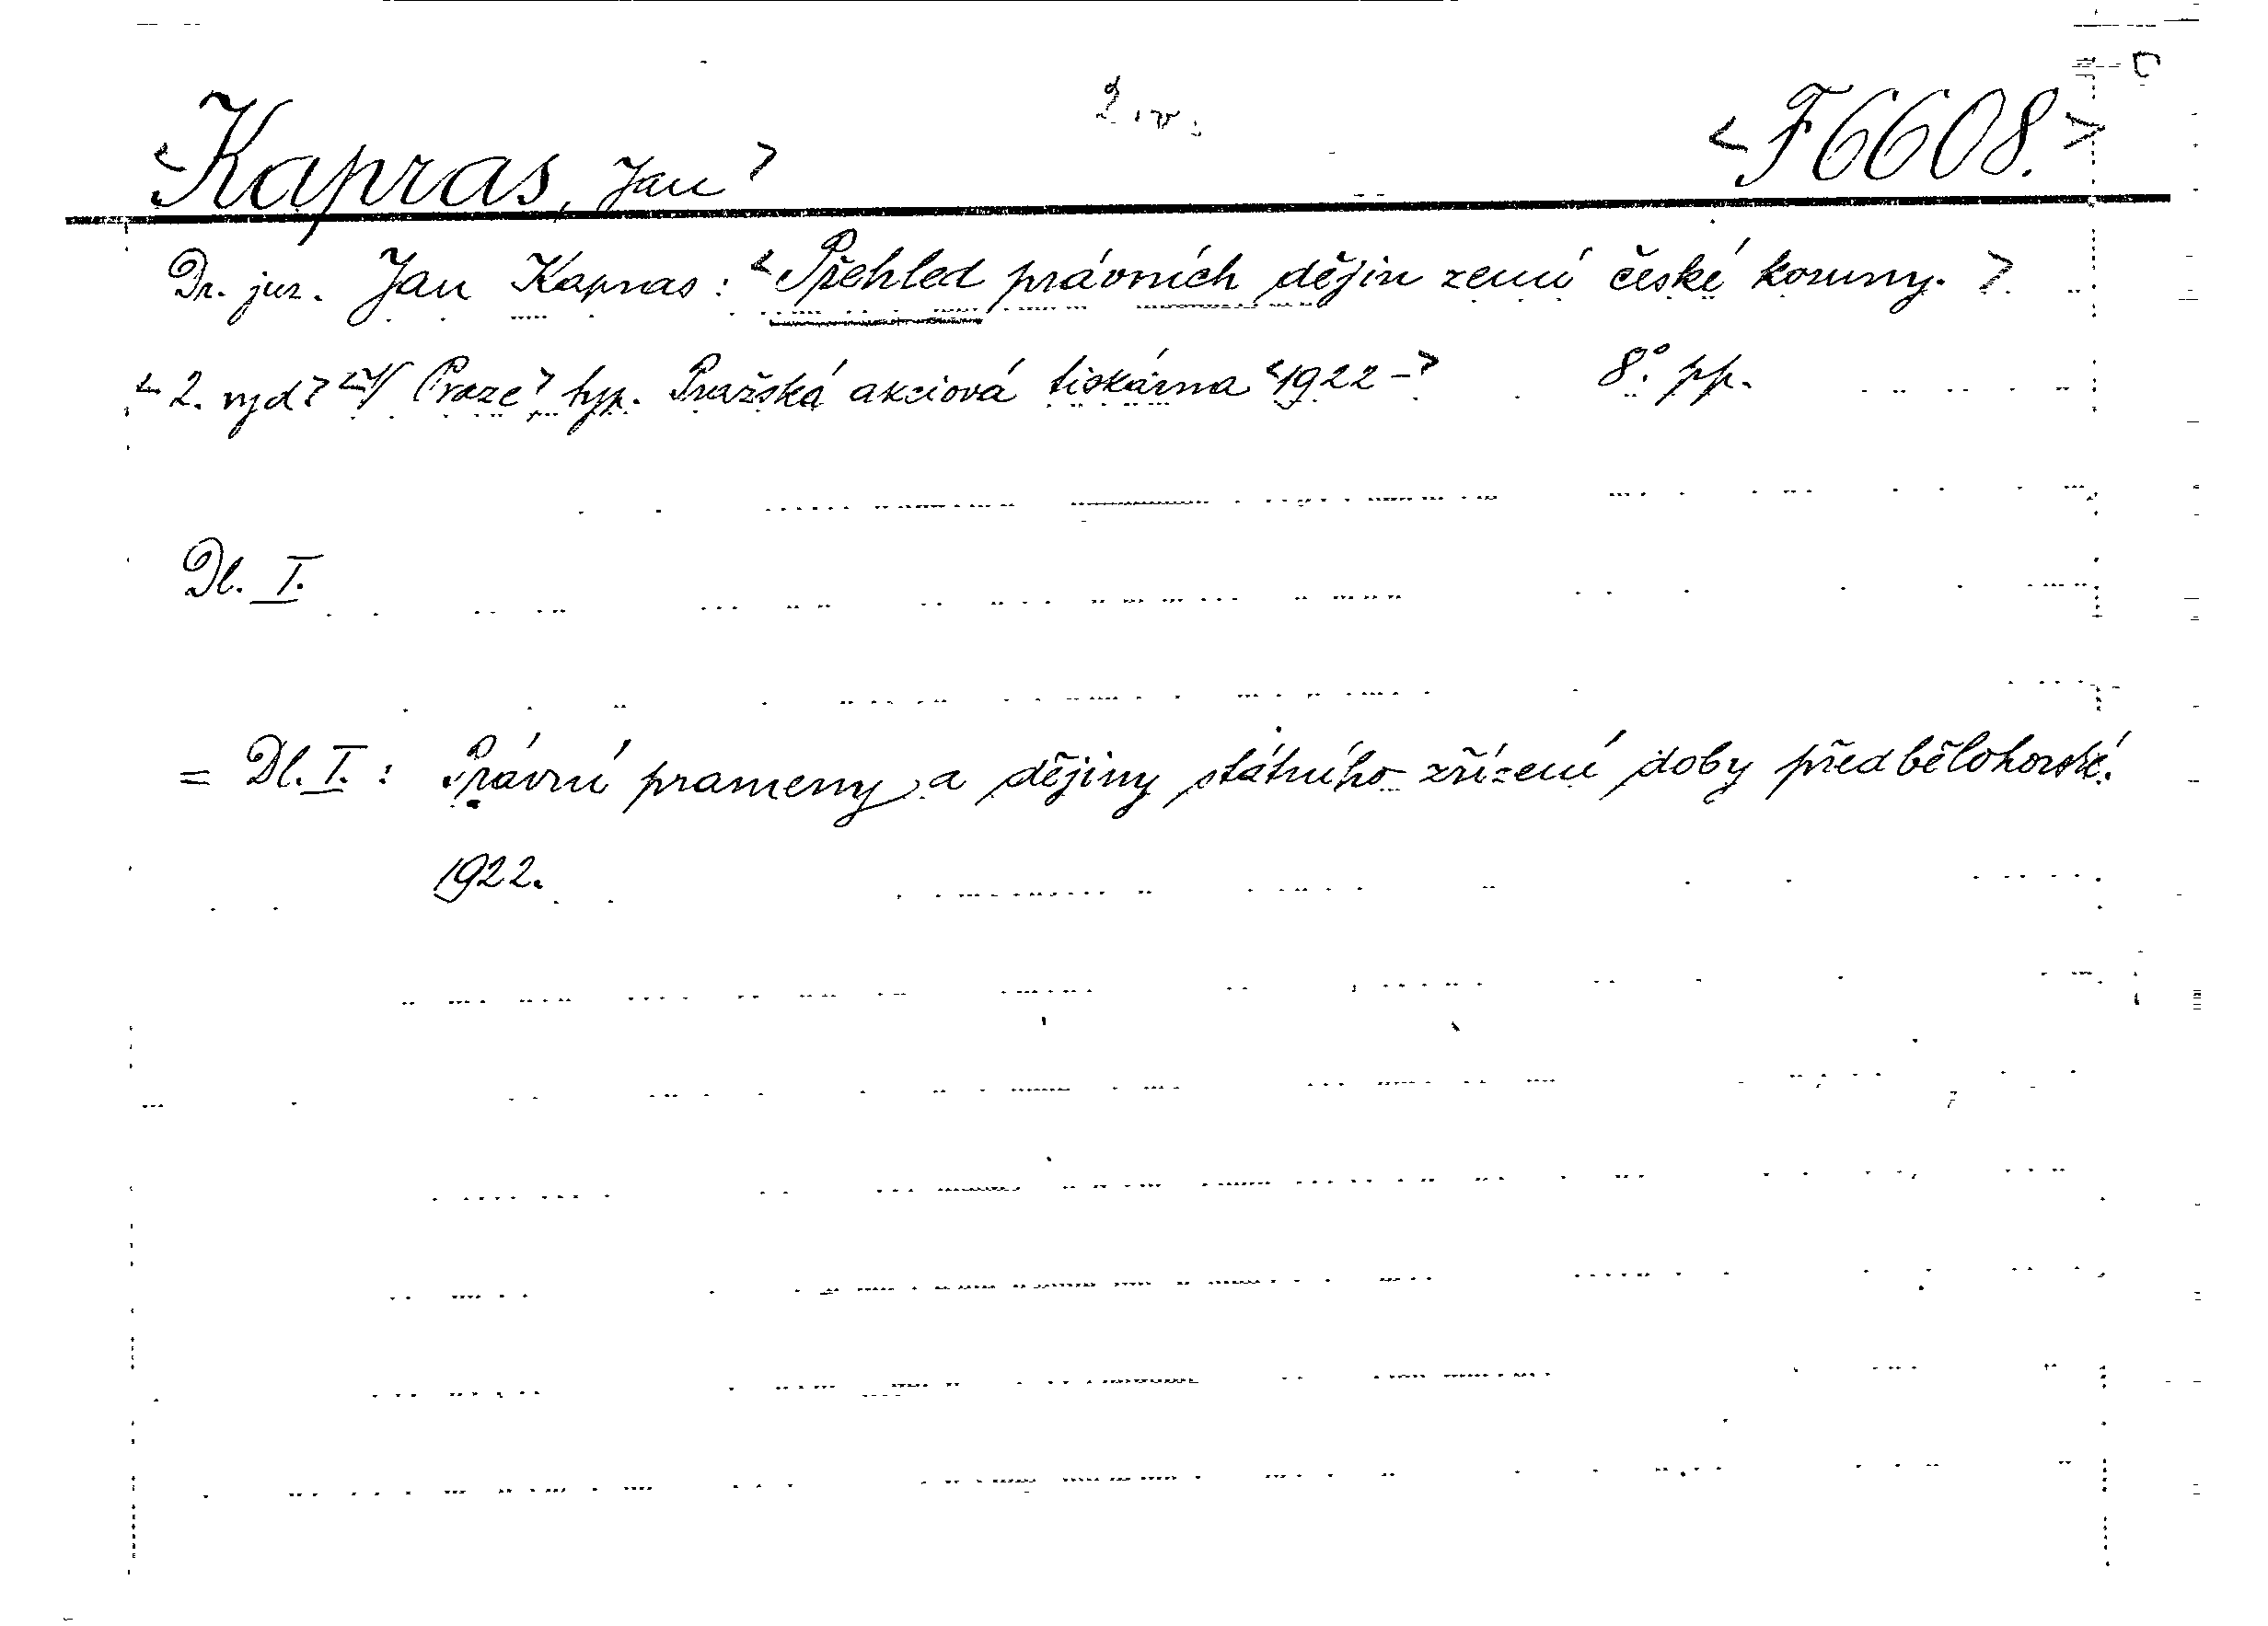 2. v.
<Kapras, Jan> <F6608.>
Dr. jur. Jan Kapras: <Přehled právních dějin zemí české koruny.>
<2. vyd> <V Praze> typ. Pražská akciová tiskárna <1922-> 8°. pp.
Dl. I.
= Dl. I.: Právní prameny a dějiny státního zřízení doby předbělohorské.
1922.